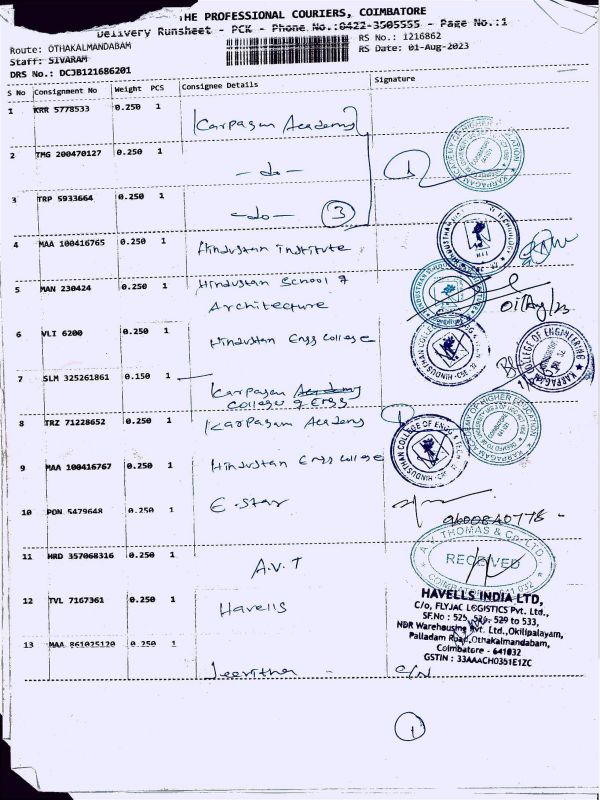 THE PROFESSIONAL COURIERS, COIMBATORE
Delivery Runsheet - PCK - Phone No.:0422-3505555 - Page No.:1
Route: OTHAKALMANDABAM
RS No.: 1216862
Staff: SIVARAM
RS Date: 01-Aug-2023
DRS No.: DCJB121686201
S No Consignment No Weight PCS Consignee Details Signature
1 KRR 5778533 0.250 1 Karpagam Academy
2 TMG 200470127 0.250 1 -do-
3 TRP 5933664 0.250 1 -do- 3
4 MAA 100416765 0.250 1 Hindustan institute
5 MAN 230424 0.250 1 Hindustan School of
Architecture 01/Aug/23
6 VLI 6200 0.250 1 Hindustan Engg College
7 SLM 325261861 0.150 1 Karpagam Academy
College of Engg
8 TRZ 71228652 0.250 1 Karpagam Academy 1
9 MAA 100416767 0.250 1 Hindustan Engg College
10 PON 5479648 0.250 1 E-Star
9600840778 -
11 HRD 357068316 0.250 1 A.V.T
A.V. THOMAS & CO. LTD.,
RECEIVED
COIMBATORE 641 032
12 TVL 7167361 0.250 1 Havells
HAVELLS INDIA LTD,
C/o, FLYJAC LOGISTICS Pvt. Ltd.,
SF.No : 525, 526, 529 to 533,
NDR Warehousing Pvt. Ltd.,Okilipalayam,
Palladam Road,Othakalmandabam,
Coimbatore - 641032
GSTIN : 33AAACH0351E1ZC
13 MAA 861025120 0.250 1 Jeevitha
1